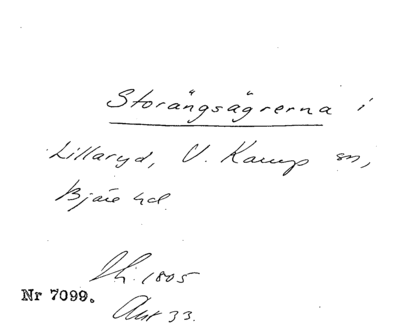 Storängsägrerna i
Lillaryd, V. Karup sn,
Bjäre hd.
1805
Nr 7099.
Akt 33.